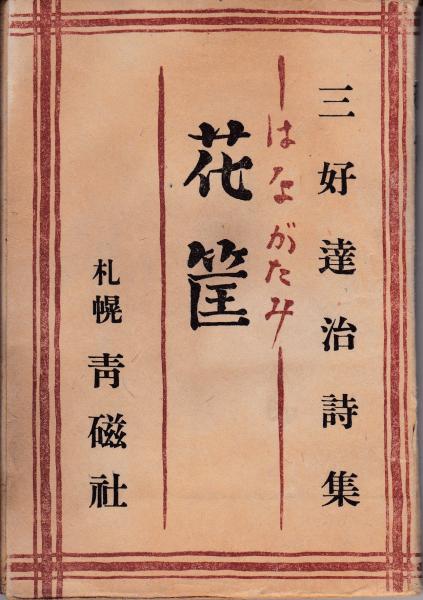 三好達治詩集
―はながたみ―
花筐
札幌 青磁社